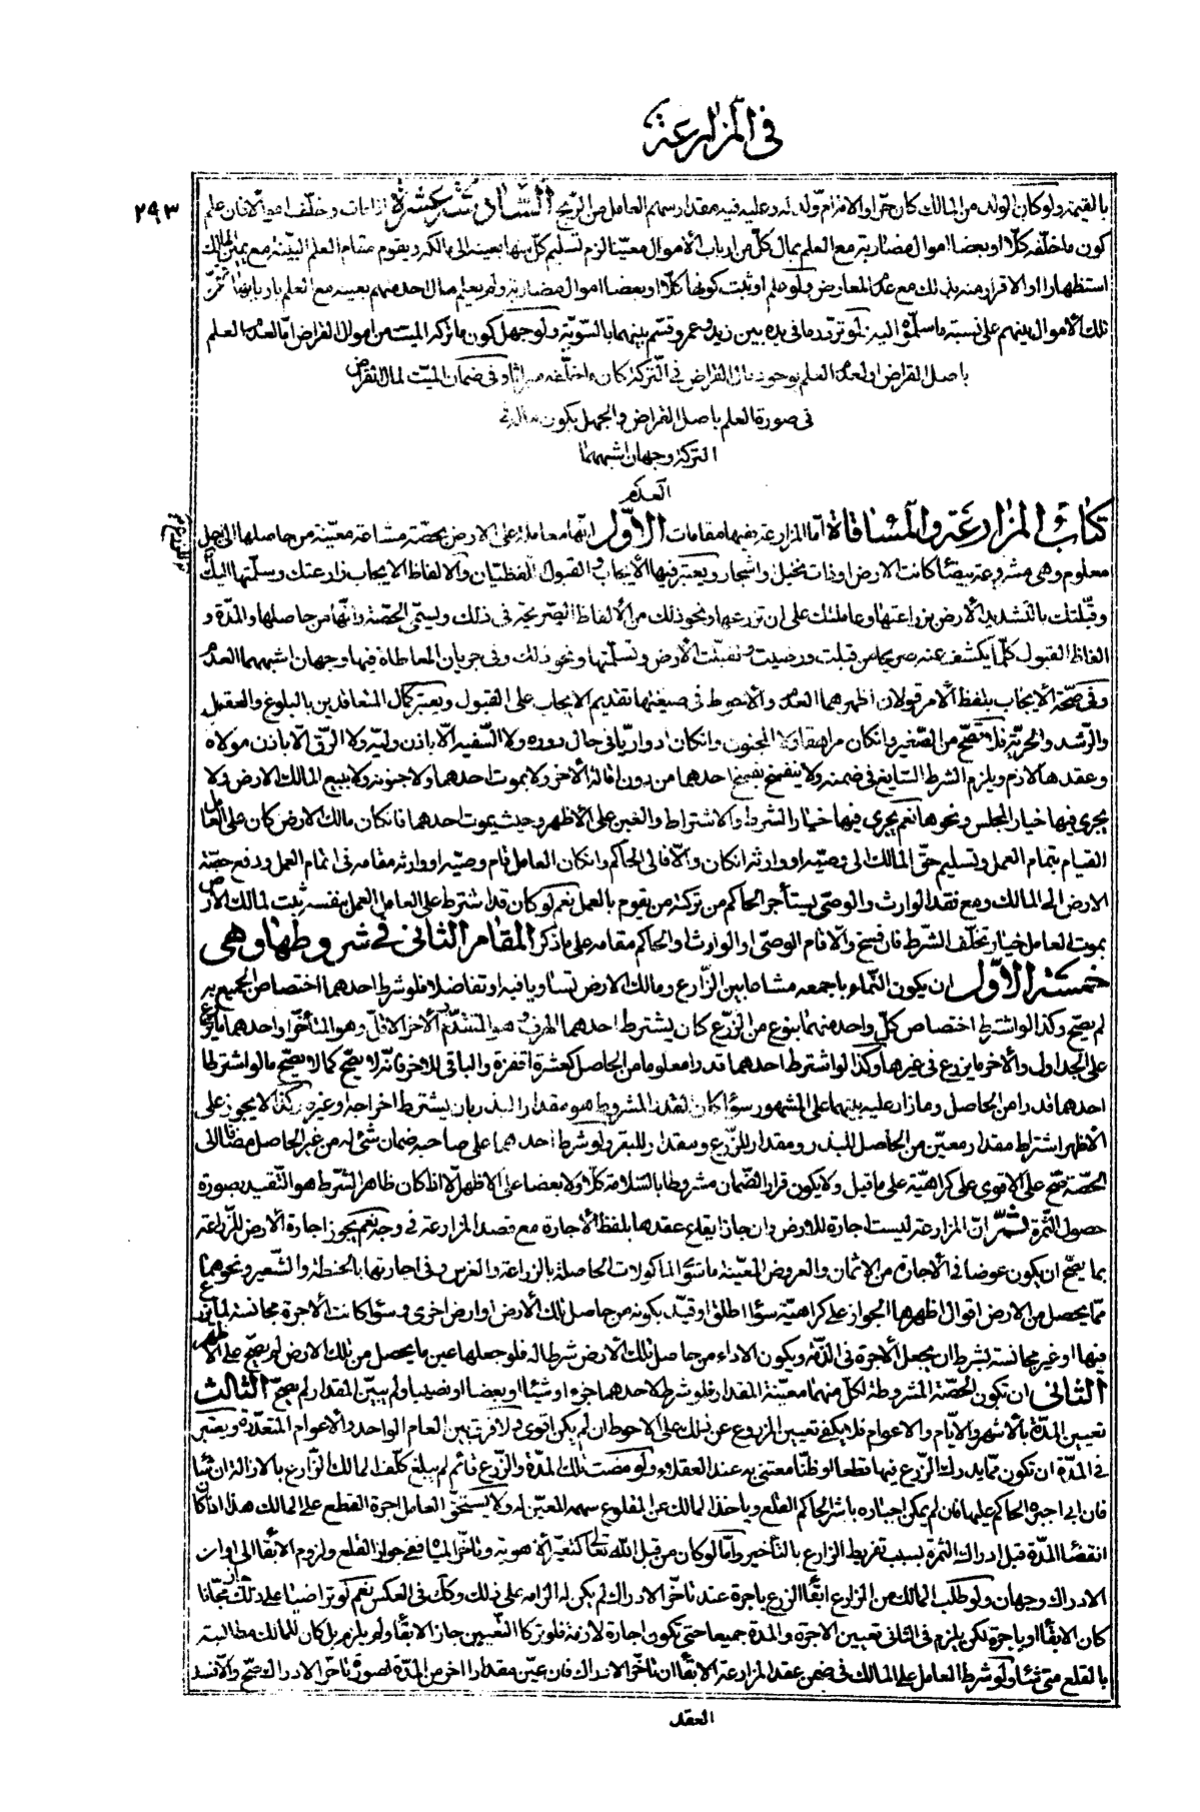 فی المزارعة
٢٩٣
بالقیمة ولو کان الولد من المالک کان حرا ولا فرم ولد له وعلیه فیه مقدار سهم العامل من الربح السادس عشرة اذا مات وخلّف اموالا فان علم
کون ما خلّفه کلّا او بعضا اموال مضاربة مع العلم بمال کلّ من ارباب الأموال معیّنا لزم تسلیم کلّ منها بعینه الی مالکه ویقوم مقام العلم البیّنة مع یمین المالک
استظهارا او الاقرار منه بذلک مع عدم المعارض ولو علم او ثبت کونها کلّا او بعضا اموال مضاربة ولم یعلم مال احد منهم بعینه مع العلم باربابها
تلک الأموال بینهم علی نسبة ما سلّموا الیه نعم لو تردّد ما فی یده بین زید وعمرو قسّم بینهما بالسّویّة ولو جهل کون ما ترکه المیت من اموال القراض امّا لعدم العلم
باصل القراض او لعدم العلم بوجود مال القراض فی الترکة کان ما خلّفه میراثا وفی ضمان المیّت لمال القراض
فی صورة العلم باصل القراض والجهل بکون ماله فی
الترکة وجهان اشبههما
العدم
کتاب المزارعة والمساقاة امّا المزارعة ففیها مقامات الأوّل انّها معاملة علی الارض بحصّة مشاعة معیّنة من حاصلها الی اجل
معلوم وهی مشروعة بیضا کانت الارض او ذات نخیل واشجار ویعتبر فیها الأیجاب والقبول اللفظیّان والالفاظ الایجاب زارعتک وسلّمتها الیک
وقبّلتک بالتشدید الأرض بزراعتها وعاملتک علی ان تزرعها ونحو ذلک من الألفاظ الصریحة فی ذلک ویسمّی الحصّة وانّها من حاصلها والمدّة و
الفاظ القبول کلّما یکشف عنه صریحا من قبلت ورضیت وتقبّلت الأرض وتسلّمتها ونحو ذلک وفی جریان المعاطاة فیها وجهان اشبههما العدم
وفی صحّة الأیجاب بلفظ الأمر قولان اظهرهما العدم والأحوط فی صیغتها تقدیم الایجاب علی القبول ویعتبر کمال المتعاقدین بالبلوغ والعقل
والرّشد والحریّة فلا تصحّ من الصّغیر وان کان مراهقا ولا المجنون وان کان ادواریّا فی حال دوره ولا السّفیه الّا باذن ولیّه ولا الرّق الّا باذن مولاه
وعقدها لازم ویلزم الشرط السّایغ فی ضمنه ولا ینفسخ بفسخ احدهما من دون اقالة الأخر ولا بموت احدهما ولا جنونه ولا ببیع المالک الارض ولا
یجری فیها خیار المجلس ونحوها نعم یجری فیها خیار الشرط والاشتراط والغبن علی الأظهر وحیث یموت احدهما فان کان مالک الارض کان علی العامل
القیام بتمام العمل وتسلیم حقّ المالک الی وصیّه او وارثه ان کان والّا فالی الحاکم وان کان العامل قام وصیّه او وارثه مقامه فی اتمام العمل ودفع حصّة
الارض الی المالک ومع فقد الوارث والوصی یستأجر الحاکم من ترکته من یقوم بالعمل نعم لو کان قد اشترط علی العامل العمل بنفسه ثبت لمالک الأرض
بموت العامل خیار تخلّف الشرط فان فسخ والّا قام الوصی او الوارث او الحاکم مقامه علی ما ذکر المقام الثانی فی شروطها وهی
خمسة الأوّل ان یکون النّماء باجمعه مشاعا بین الزّارع ومالک الارض تساویا فیه او تفاضلا فلو شرط احدهما اختصاص الجمیع به
لم یصحّ وکذا لو اشترط اختصاص کلّ واحد منهما بنوع من الزّرع کان یشترط احدهما الهرف وهو المتقدّم والأخر الأفل وهو المتأخّر او احدهما ما یزرع
علی الجداول والأخر ما یزرع فی غیرها وکذا لو اشترط احدهما قدرا معلوما من الحاصل کعشرة اقفزة والباقی للأخر فانّه لا یصحّ کما لا یصحّ ما لو اشترطا
احدهما قدرا من الحاصل وما زاد علیه بینهما علی المشهور سواء کان القدر المشروط هو مقدار البذر بان یشترط اخراجه او غیره وکذا لا یجوز علی
الأظهر اشتراط مقدار معیّن من الحاصل للبذر ومقدار للزّرع ومقدار للبقر ولو شرط احدهما علی صاحبه ضمان شیٔ له من غیر الحاصل مضافا الی
الحصّة صحّ علی الاقوی علی کراهیّة علی ما قیل ولا یکون قرار الضّمان مشروطا بالسّلامة کلّا ولا بعضا علی الاظهر الّا اذا کان ظاهر الشّرط هو التّقیید بصورة
حصول الثّمرة ثمّ انّ المزارعة لیست اجارة للارض وان جاز ایقاع عقدها بلفظ الأجارة مع قصد المزارعة فی وجه نعم یجوز اجارة الأرض للزّراعة
بما یصحّ ان یکون عوضا فی الأجارة من الاثمان والعروض المعیّنة ما سوی المأکولات الحاصلة بالزراعة والغرس وفی اجارتها بالحنطة والشّعیر ونحوهما
ممّا یحصل من الارض اقوال اظهرها الجواز علی کراهیّة سواء اطلق او قیّد بکونه من حاصل تلک الأرض او ارض اخری وسواء کانت الأجرة مجانسة لما یزرع
فیها او غیر مجانسة بشرط ان یجعل الأجرة فی الذّمّة ویکون الاداء من حاصل تلک الأرض شرطا له فلو جعلها عین ما یحصل من تلک الارض لم یصحّ علی الأظهر
الثانی ان تکون الحصّة المشروطة لکلّ منهما معیّنة المقدار فلو شرط لاحدهما جزء او شیئا او بعضا او نصیبا ولم یبیّن المقدار لم یصحّ الثالث
تعیین المدّة بالأشهر والأیّام والاعوام فلا یکفی تعیین المزروع عن ذلک علی الاحوط ان لم یکن اقوی ولا فرق بین العام الواحد والأعوام المتعدّدة ویعتبر
فی المدّة ان تکون ممّا یدرک الزّرع فیها قطعا او ظنّا معتنی به عند العقلاء ولو مضت تلک المدّة والزّرع قائم لم یبلغ کلّف المالک الزّارع بالازالة ان شاء
فان ابی اجبره الحاکم علیها فان لم یمکن اجباره باشر الحاکم القلع ویأخذ المالک عن المقلوع سهمه المعیّن له ولا یستحقّ العامل اجرة القطع علی المالک هذا اذا کان
انقضاء المدّة قبل ادراک الثمرة بسبب تفریط الزارع بالتأخیر وامّا لو کان من قبل اللّه تعالی کتغیّر الأهویة وتأخّر المیاه ففی جواز القلع ولزوم الأبقاء الی اوان
الادراک وجهان ولو طلب المالک من الزارع ابقاء الزرع باجرة عند تأخّر الادراک لم یکن له الزامه علی ذلک وکذلک فی العکس نعم لو تراضیا علی ذلک جاز مجّانا
کان الابقاء او باجرة لکن یلزم فی الثانی تعیین الاجرة والمدة جمیعا حتی تکون اجارة لازمة فلو ترکا التّعیین جاز الابقاء ولم یلزم بل کان للمالک مطالبته
بالقلع متی شاء ولو شرط العامل علی المالک فی ضمن عقد المزارعة الأبقاء ان تأخّر الادراک فان عیّن مقدارا اخر من المدّة لصورة تأخّر الادراک صحّ والّا فسد
العقد